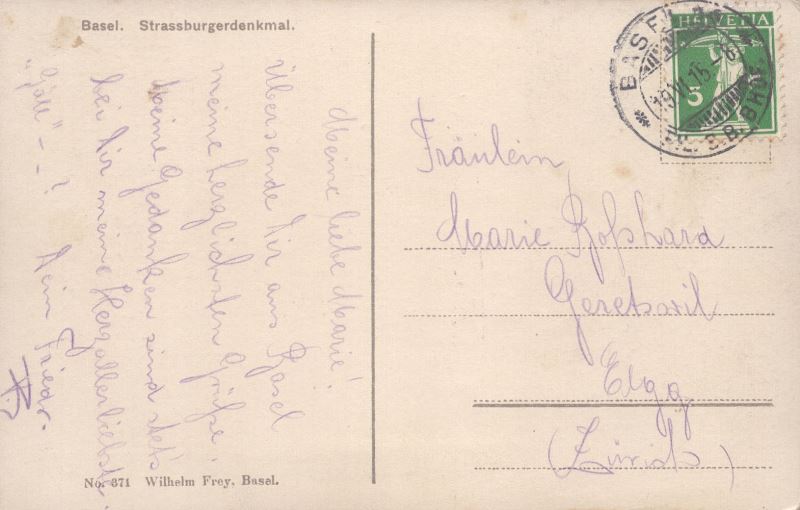 Basel. Strassburgerdenkmal.
Meine liebe Marie!
Übersende Dir aus Basel
meine herzlichsten Grüße.
Meine Gedanken sind stets
bei Dir meine Herzallerliebste.
"Gäll" - - ?
Dein Friedr.
No. 371 Wilhelm Frey, Basel.
HELVETIA
5
BASEL
19.VI.15.-16
S.B.BHN.
Fräulein
Marie Boßhard
Geretswil
Elgg
(Zürich)